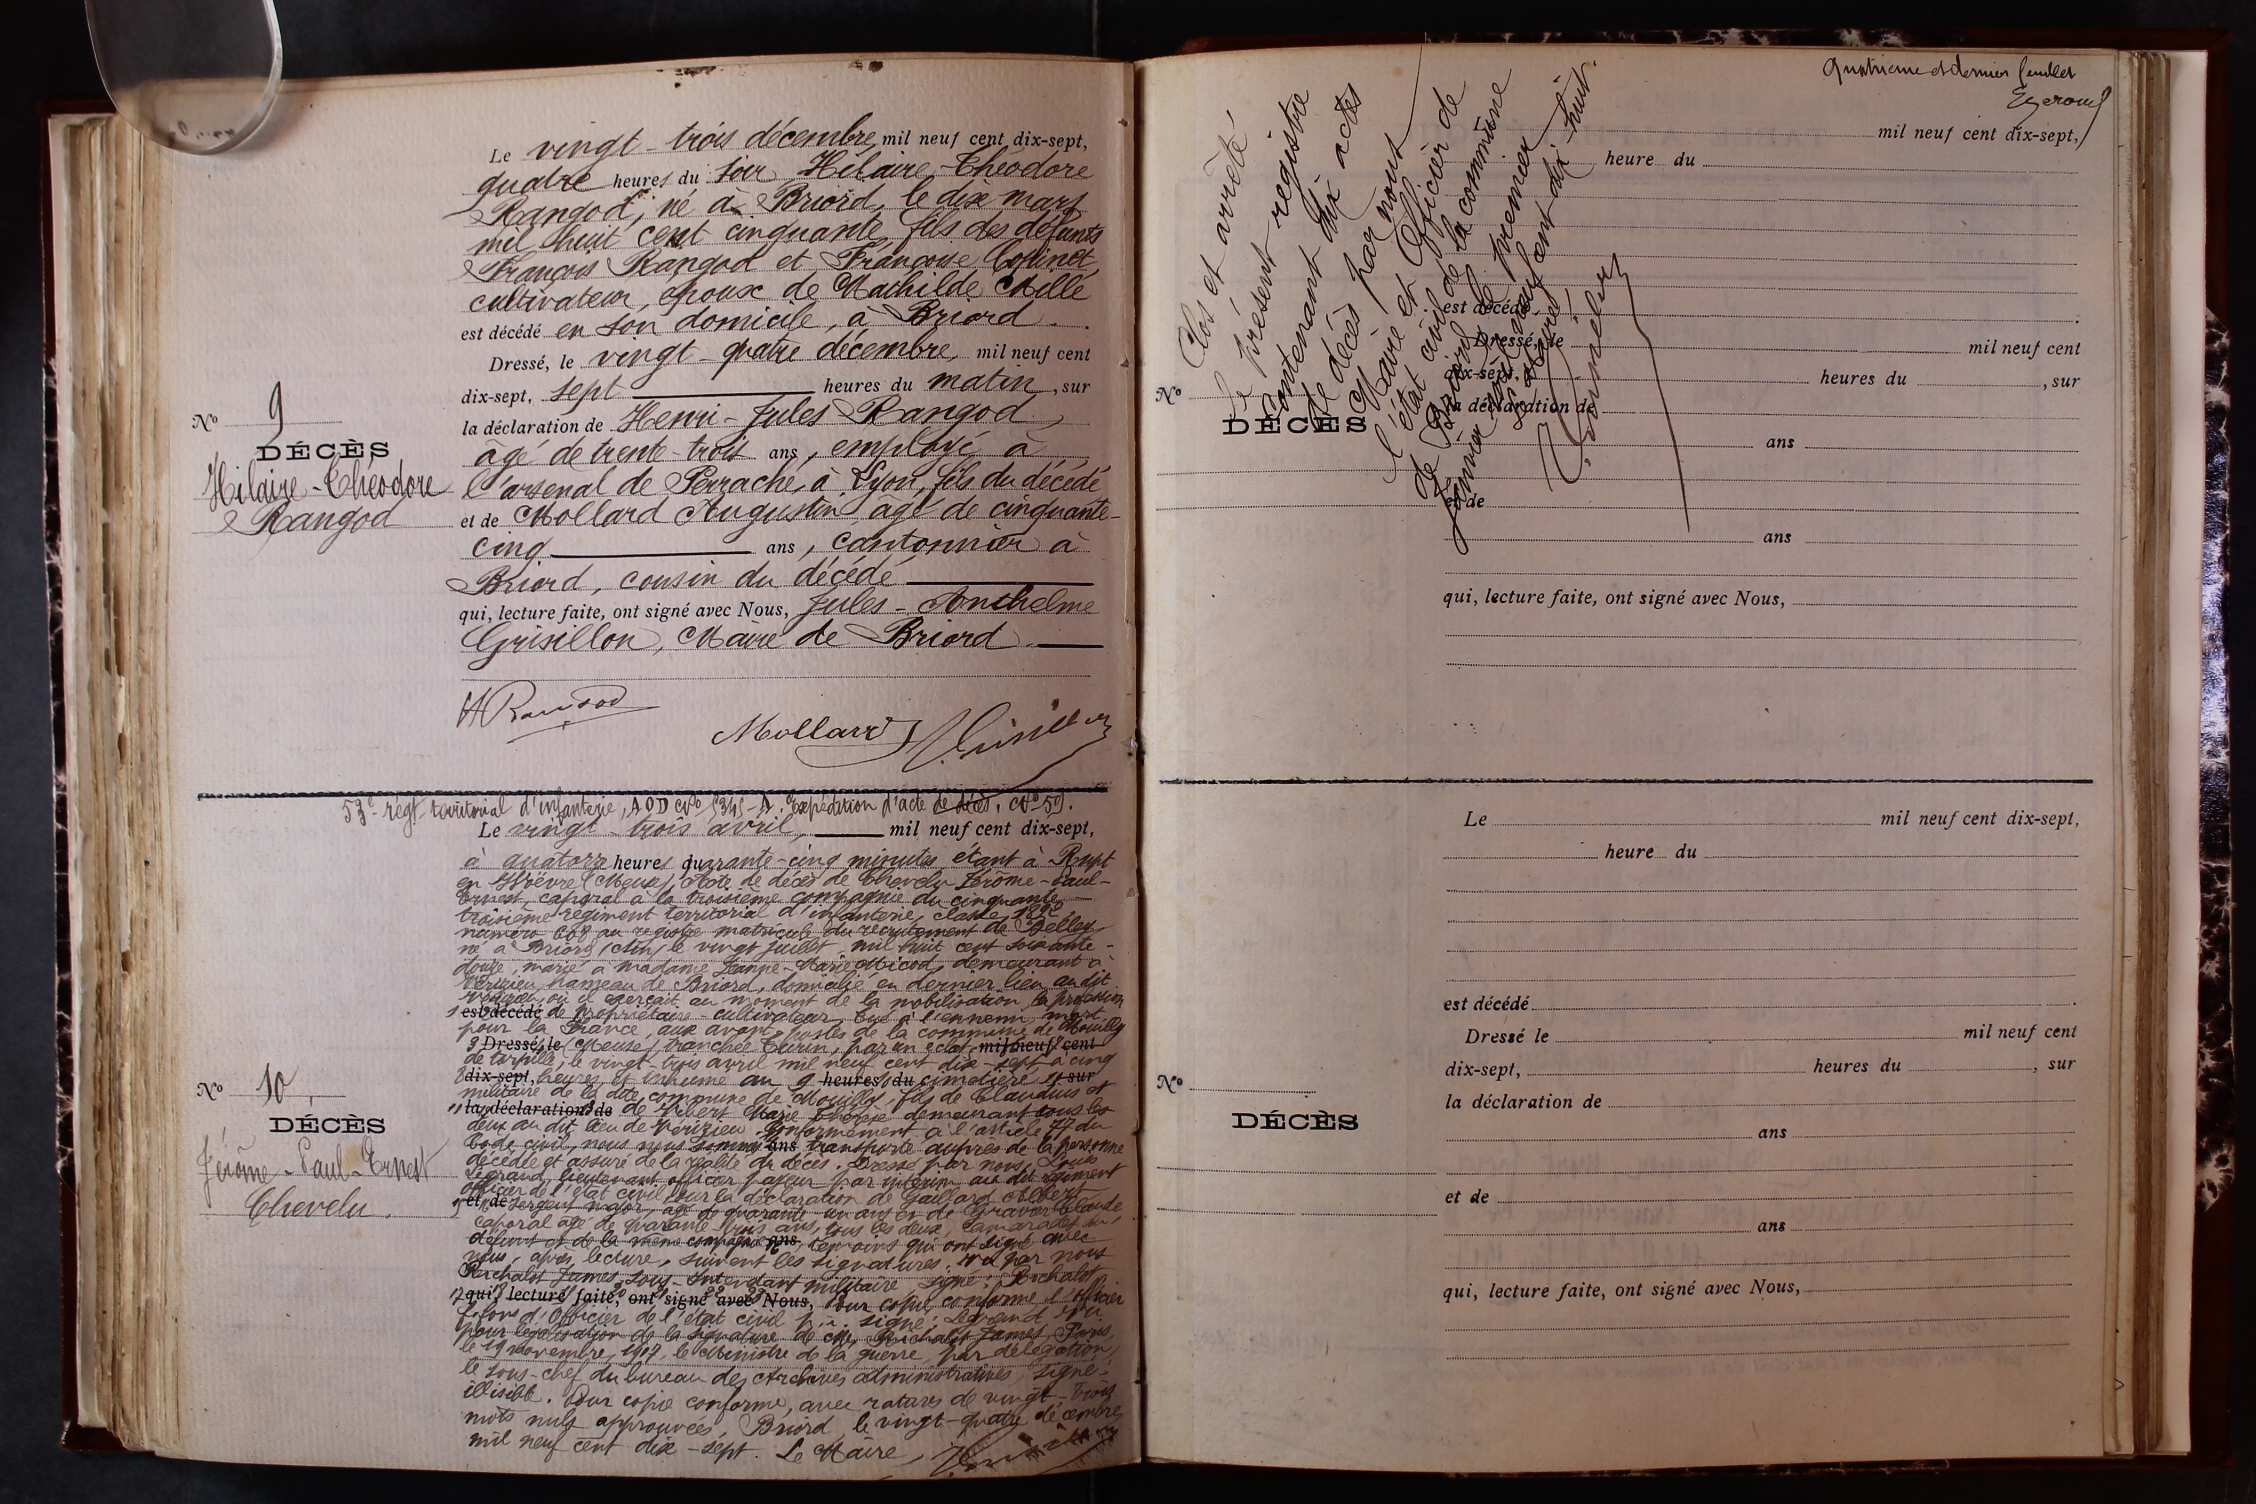 Le vingt-trois décembre, mil neuf cent dix-sept,
quatre heures du soir Hilaire-Théodore
Rangod, né à Briord, le dix mars
mil huit cent cinquante, fils des défunts
François Rangod et Françoise
cultivateur, époux de Mathilde Mille
est décédé en son domicile, à Briord.
Dressé, le vingt-quatre décembre, mil neuf cent
dix-sept, sept heures du matin, sur
la déclaration de Henri-Jules Rangod,
âgé de trente-trois ans, employé à
l'arsenal de Perrache, à Lyon, fils du décédé
et de Mollard Augustin âgé de cinquante-
cinq ans, cantonnier à
Briord, cousin du décédé
qui, lecture faite, ont signé avec Nous, Jules-Anthelme
Grisillon, Maire de Briord.
Nº 9
DÉCÈS
Hilaire-Théodore
Rangod
Mollard
53e régt territorial d'infanterie, A O D Expédition d'acte de décès, Nº 59.
Le vingt-trois avril, mil neuf cent dix-sept,
à quatorze heures quarante-cinq minutes étant à Rupt
en Woëvre (Meuse) Acte de décès de Chevelu Jérôme-Paul-
Ernest, caporal à la troisième compagnie du cinquante
troisième régiment territorial d'infanterie, classe 1892
numéro 608 au registre matricule du recrutement de Belley
né à Briord (Ain) le vingt juillet mil huit cent soixante-
douze, marié à madame Jeanne-Marie Micod, demeurant à
Vérizieu, hameau de Briord, domicilié en dernier lieu au dit
Vérizieu, où il exerçait au moment de la mobilisation, la profession
est décédé de propriétaire-cultivateur, tué à l'ennemi, mort
pour la France, aux avant-postes de la commune de Mouilly
Dressé, le (Meuse) tranchée Turin, par un éclat mil neuf cent
de torpille, le vingt-trois avril mil neuf cent dix-sept à cinq
dix-sept, heures, et inhumé au heures du cimetière sur
militaire de la dite commune de Mouilly, fils de Claudius et
la déclaration de de Vibert Marie Thérèse demeurant tous les
deux au dit lieu de Vérizieu. Conformément à l'article 77 du
Code civil, nous nous sommes ans transporté auprès de la personne
décédée et assuré de la réalité du décès. Dressé par nous, Louis
Legrand, lieutenant officier payeur par intérim au dit régiment
officier de l'état civil, sur la déclaration de Gaillard Albert
et de sergent major, âgé de quarante un ans et de Gravier Claude
caporal âgé de quarante trois ans, tous les deux, camarades du
défunt et de la même compagnie ans, témoins qui ont signé avec
nous, après lecture, suivent les signatures. par nous
James, sous-Intendant militaire signé:
qui, lecture faite, ont signé avec Nous, Pour copie conforme, l'officier
d'Officier de l'état civil p.i. signé: Legrand
pour légalisation de la signature de Mr, James, Paris,
le 19 novembre, 1917, le Ministre de la guerre, par délégation,
le sous-chef du bureau des Archives administratives, signé:
illisible. Pour copie conforme, avec ratures de vingt-trois
mots nuls approuvées, Briord, le vingt-quatre décembre
mil neuf cent dix-sept. Le Maire,
Nº 10,
DÉCÈS
Jérôme-Paul-Ernest
Chevelu.
Quatrième et dernier feuillet
Clos et arrêté
le présent registre
contenant dix actes
de décès par nous
Maire et Officier de
l'état civil de la commune
de Briord le premier
janvier mil neuf cent dix-huit.
Le Maire
mil neuf cent dix-sept,
heure du
est décédé
Dressé, le mil neuf cent
dix-sept, heures du , sur
la déclaration de
ans
et de
ans
qui, lecture faite, ont signé avec Nous,
Nº
DÉCÈS
Le mil neuf cent dix-sept,
heure du
est décédé
Dressé le mil neuf cent
dix-sept, heures du , sur
la déclaration de
ans
et de
ans
qui, lecture faite, ont signé avec Nous,
Nº
DÉCÈS